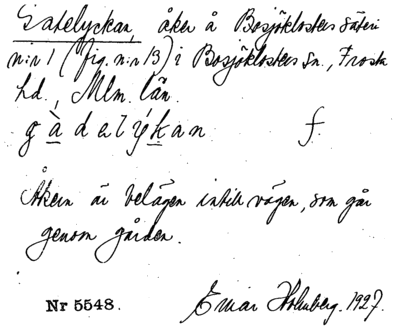 Gatelyckan, åker å Bosjöklosters säteri
n:r 1 (fig. n:r 13) i Bosjöklosters sn., Frosta
hd., Mlm. län.
gàdalýkan f.
Åkern är belägen intill vägen, som går
genom gården.
Nr 5548. Einar Holmberg. 1927.